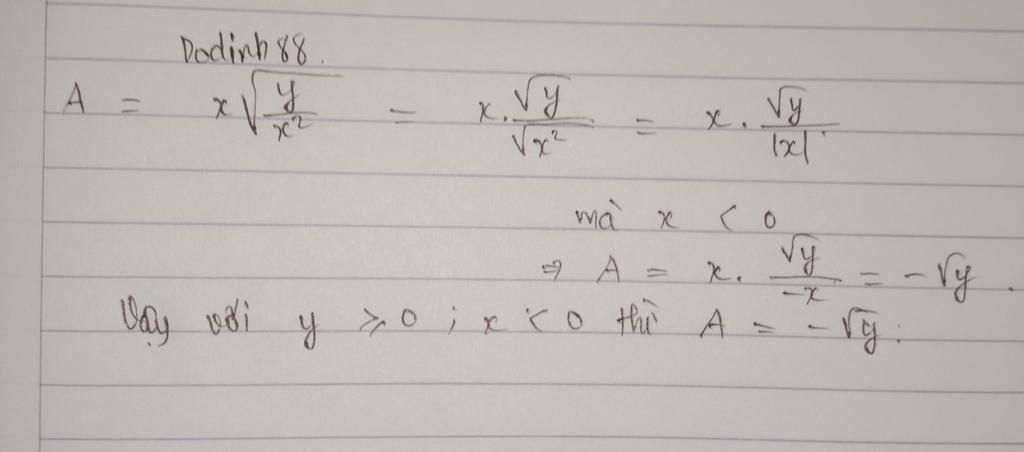 Dodinh88.
A = x√(y/x²) = x.√y/√x² = x.√y/|x|.
mà x < 0
⇒ A = x. √y/-x = -√y.
Vậy với y ⩾ 0 ; x < 0 thì A = -√y.